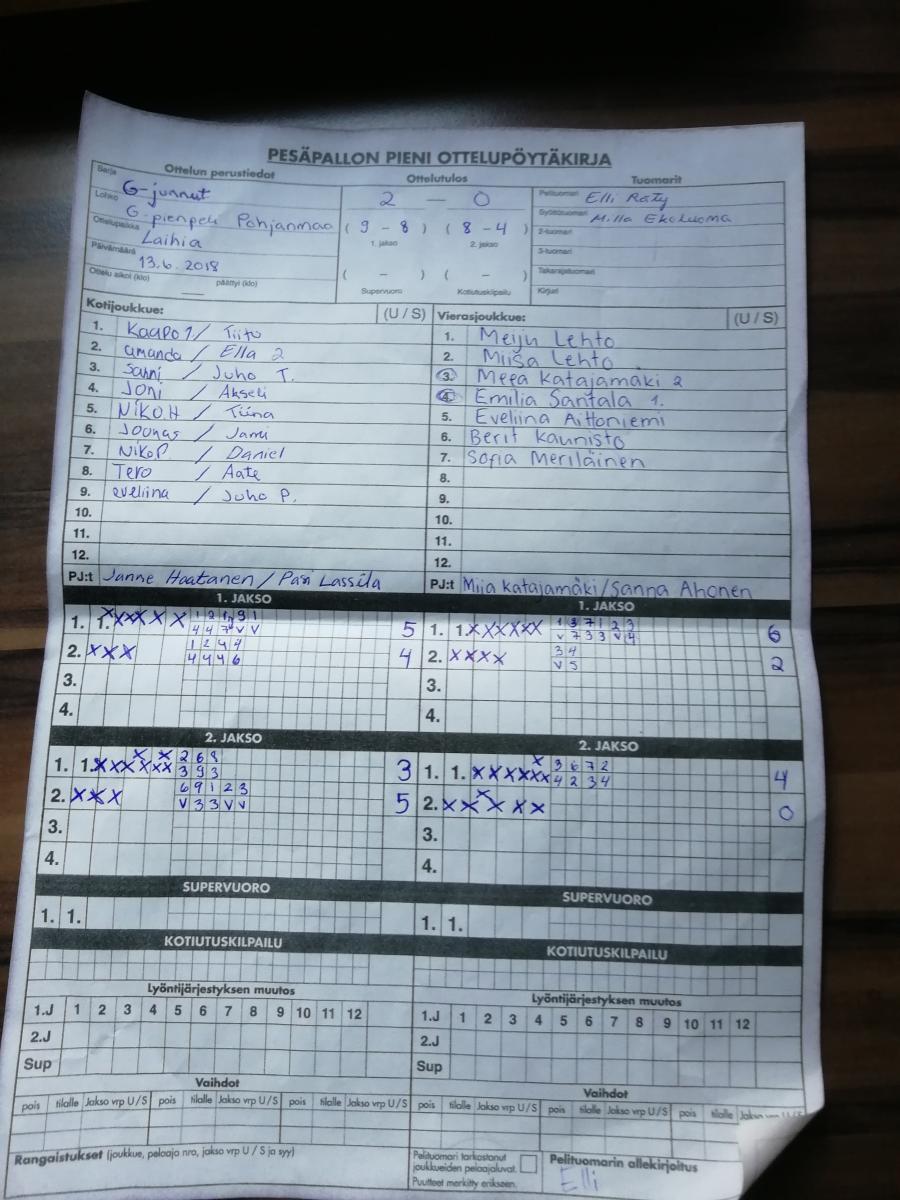 PESÄPALLON PIENI OTTELUPÖYTÄKIRJA
Ottelun perustiedot
Ottelutulos
Tuomarit
Sarja G-junnut
Lohko G-pienpeli Pohjanmaa
Ottelupaikka Laihia
Päivämäärä 13.6.2018
Ottelu alkoi (klo) päättyi (klo)
2 — 0
( 9 - 8 ) ( 8 - 4 )
1. jakso 2. jakso
( - ) ( - )
Supervuoro Kotiutuskilpailu
Pelituomari Elli Räty
Syöttötuomari Milla Ekoluoma
2-tuomari
3-tuomari
Takarajatuomari
Kirjuri
Kotijoukkue: (U / S)
1. Kaapo 1 / Tiitu
2. amanda / Ella 2
3. Sanni / Juho T.
4. Joni / Akseli
5. Niko.H / Tiina
6. Joonas / Jami
7. Niko P / Daniel
8. Tero / Aate
9. eveliina / Juho P.
10.
11.
12.
PJ:t Janne Haatanen / Pasi Lassila
Vierasjoukkue: (U / S)
1. Meiju Lehto
2. Miisa Lehto
3. Meea Katajamäki 2
4. Emilia Santala 1.
5. Eveliina Aittoniemi
6. Berit Kaunisto
7. Sofia Meriläinen
8.
9.
10.
11.
12.
PJ:t Miia Katajamäki/Sanna Ahonen
1. JAKSO
1. 1. X X X X X 5
2. X X X 1 2 4 4 4
4 4 4 6
3.
4.
1. JAKSO
1. 1. X X X X X X 1 3 7 1 2 3 6
V 7 3 3 V 4
2. X X X X 3 4 2
V 5
3.
4.
2. JAKSO
1. 1. X X X X X X X X 2 6 8 3
3 9 3
2. X X X 6 9 1 2 3 5
V 3 3 V V
3.
4.
2. JAKSO
1. 1. X X X X X X X 3 6 7 2 4
4 2 3 4
2. X X X X X X 0
3.
4.
SUPERVUORO
1. 1.
SUPERVUORO
1. 1.
KOTIUTUSKILPAILU
KOTIUTUSKILPAILU
Lyöntijärjestyksen muutos
1.J 1 2 3 4 5 6 7 8 9 10 11 12
2.J
Sup
Lyöntijärjestyksen muutos
1.J 1 2 3 4 5 6 7 8 9 10 11 12
2.J
Sup
Vaihdot
pois tilalle Jakso vrp U / S pois tilalle Jakso vrp U / S pois tilalle Jakso vrp U / S
Vaihdot
pois tilalle Jakso vrp U / S pois tilalle Jakso vrp U / S pois tilalle
Rangaistukset (joukkue, pelaaja nro, jakso vrp U / S ja syy)
Pelituomari tarkastanut
joukkueiden pelaajaluvat.
Puutteet merkitty erikseen.
Pelituomarin allekirjoitus
Elli